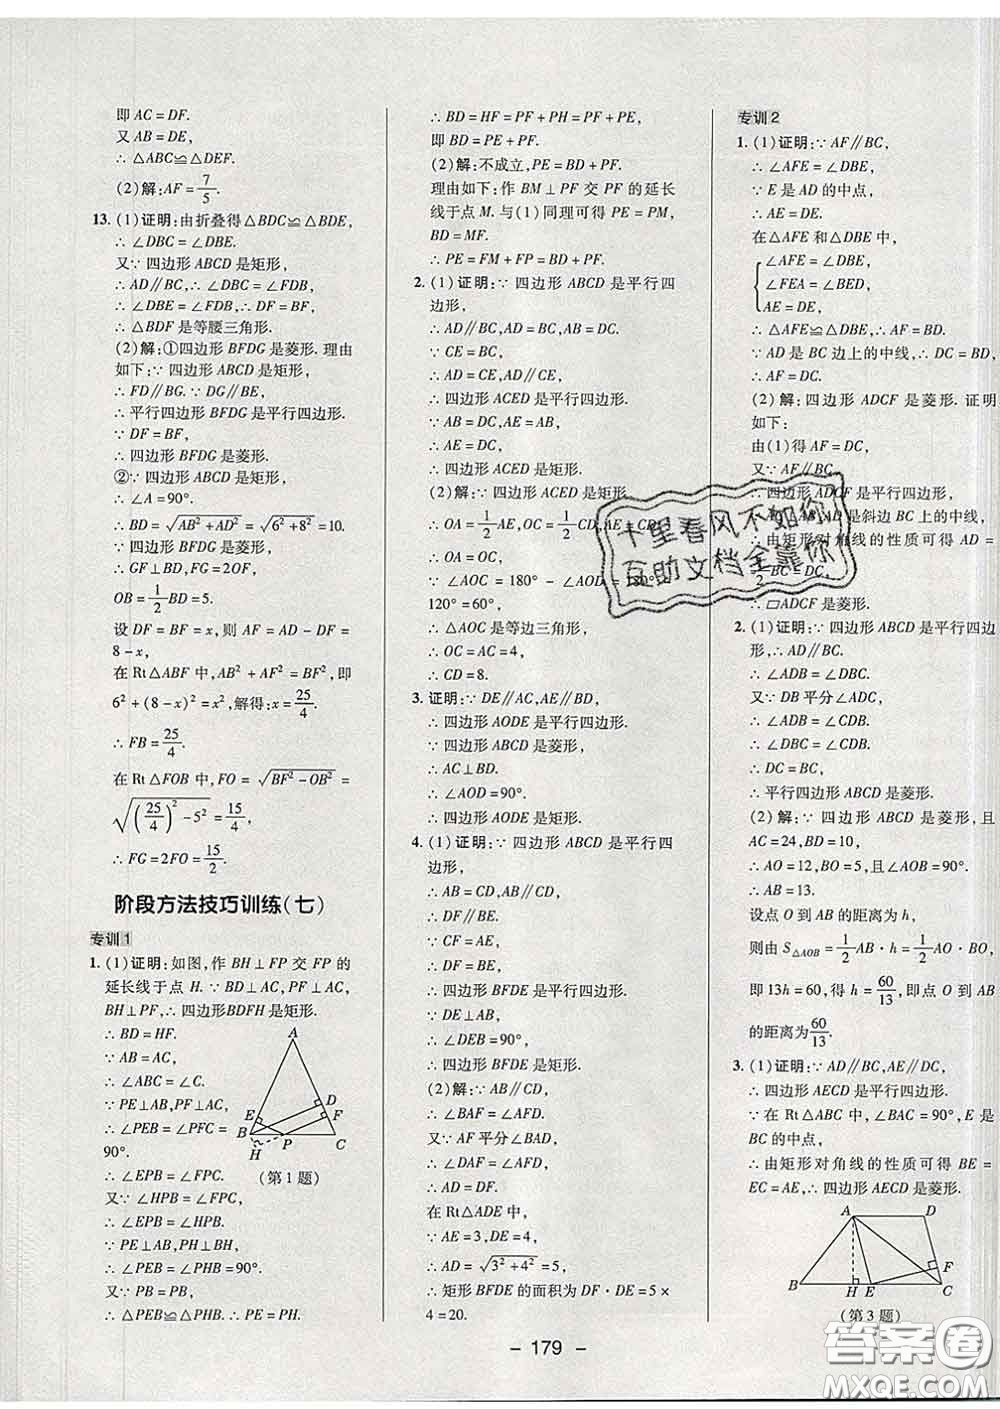 即 AC = DF.
又 AB = DE,
∴ △ABC≌△DEF.
(2)解:AF = 7/5.
13. (1)证明:由折叠得△BDC≌△BDE,
∴ ∠DBC = ∠DBE.
又∵ 四边形 ABCD 是矩形,
∴ AD∥BC,∴ ∠DBC = ∠FDB,
∴ ∠DBE = ∠FDB,∴ DF = BF,
∴ △BDF 是等腰三角形.
(2)解:①四边形 BFDG 是菱形. 理由
如下:∵ 四边形 ABCD 是矩形,
∴ FD∥BG. ∵ DG∥BE,
∴ 平行四边形 BFDG 是平行四边形.
∵ DF = BF,
∴ 四边形 BFDG 是菱形.
②∵ 四边形 ABCD 是矩形,
∴ ∠A = 90°.
∴ BD = √(AB² + AD²) = √(6² + 8²) = 10.
∴ GF⊥BD, FG = 2OF,
OB = 1/2 BD = 5.
设 DF = BF = x,则 AF = AD - DF =
8 - x,
在 Rt△ABF 中,AB² + AF² = BF²,即
6² + (8 - x)² = x²,解得:x = 25/4.
∴ FB = 25/4.
在 Rt△FOB 中,FO = √(BF² - OB²) =
√((25/4)² - 5²) = 15/4,
∴ FG = 2FO = 15/2.
阶段方法技巧训练(七)
专训1
1. (1)证明:如图,作 BH⊥FP 交 FP 的
延长线于点 H. ∵ BD⊥AC, PF⊥AC,
BH⊥PF,∴ 四边形BDFH 是矩形.
∴ BD = HF.
∵ AB = AC,
∴ ∠ABC = ∠C.
∵ PE⊥AB, PF⊥AC,
∴ ∠PEB = ∠PFC =
90°.
∴ ∠EPB = ∠FPC.
又∵ ∠HPB = ∠FPC,
∴ ∠EPB = ∠HPB.
∵ PE⊥AB,PH⊥BH,
∴ ∠PEB = ∠PHB = 90°.
又∵ PB = PB,
∴ △PEB≌△PHB. ∴ PE = PH.
A
E
D
F
B
P
C
H
(第 1 题)
∴ BD = HF = PF + PH = PF + PE,
即 BD = PE + PF.
(2)解:不成立,PE = BD + PF.
理由如下:作 BM⊥PF 交 PF 的延长
线于点 M. 与(1)同理可得 PE = PM,
BD = MF.
∴ PE = FM + FP = BD + PF.
2. (1)证明:∵ 四边形 ABCD 是平行四
边形,
∴ AD∥BC,AD = BC, AB = DC.
∵ CE = BC,
∴ AD = CE,AD∥CE.
∴ 四边形 ACED 是平行四边形.
∵ AB = DC,AE = AB,
∴ AE = DC,
∴ 四边形 ACED 是矩形.
(2)解:∵ 四边形 ACED 是矩形
∴ OA = 1/2 AE,OC = 1/2 CD,AE = CD.
∴ OA = OC.
∵ ∠AOC = 180° - ∠AOD = 180° -
120° = 60°,
∴ △AOC 是等边三角形,
∴ OC = AC = 4,
∴ CD = 8.
3. 证明:∵ DE∥AC,AE∥BD,
∴ 四边形 AODE 是平行四边形.
∵ 四边形 ABCD 是菱形,
∴ AC⊥BD.
∴ ∠AOD = 90°.
∴ 四边形 AODE 是矩形.
4. (1)证明:∵ 四边形 ABCD 是平行四
边形,
∴ AB = CD,AB∥CD,
∴ DF∥BE.
∵ CF = AE,
∴ DF = BE.
∴ 四边形 BFDE 是平行四边形.
∵ DE⊥AB,
∴ ∠DEB = 90°.
∴ 四边形 BFDE 是矩形.
(2)解:∵ AB∥CD,
∴ ∠BAF = ∠AFD.
又∵ AF 平分∠BAD,
∴ ∠DAF = ∠AFD,
∴ AD = DF.
在 Rt△ADE 中,
∵ AE = 3,DE = 4,
∴ AD = √(3² + 4²) = 5,
∴ 矩形 BFDE 的面积为 DF · DE = 5 ×
4 = 20.
专训2
1. (1)证明:∵ AF∥BC,
∴ ∠AFE = ∠DBE.
∵ E 是 AD 的中点,
∴ AE = DE.
在△AFE 和△DBE 中,
∠AFE = ∠DBE,
∠FEA = ∠BED,
AE = DE,
∴ △AFE≌△DBE,∴ AF = BD.
∵ AD 是 BC 边上的中线,∴ DC = BD,
∴ AF = DC.
(2)解:四边形 ADCF 是菱形. 证明
如下:
由(1)得 AF = DC,
又∵ AF∥BC,
∴ 四边形 ADCF 是平行四边形.
AD 是斜边 BC 上的中线,
∴ 由矩形对角线的性质可得 AD =
1/2 BC = DC.
∴ ▱ADCF 是菱形.
2. (1)证明:∵ 四边形 ABCD 是平行四边
形,∴ AD∥BC.
∴ ∠ADB = ∠DBC.
又∵ DB 平分∠ADC,
∴ ∠ADB = ∠CDB.
∴ ∠DBC = ∠CDB.
∴ DC = BC.
∴ 平行四边形 ABCD 是菱形.
(2)解:∵ 四边形 ABCD 是菱形,且
AC = 24,BD = 10,
∴ AO = 12,BO = 5,且∠AOB = 90°.
∴ AB = 13.
设点 O 到 AB 的距离为 h,
则由 S△AOB = 1/2 AB · h = 1/2 AO · BO,
即 13h = 60,得 h = 60/13,即点 O 到 AB
的距离为 60/13.
3. (1)证明:∵ AD∥BC,AE∥DC,
∴ 四边形 AECD 是平行四边形.
∵ 在 Rt△ABC 中,∠BAC = 90°,E 是
BC 的中点,
∴ 由矩形对角线的性质可得 BE =
EC = AE,∴ 四边形 AECD 是菱形.
A
D
F
B
H
E
C
(第 3 题)
千里春风不如你
互助文档全靠你
- 179 -
答案圈
MXQE.COM